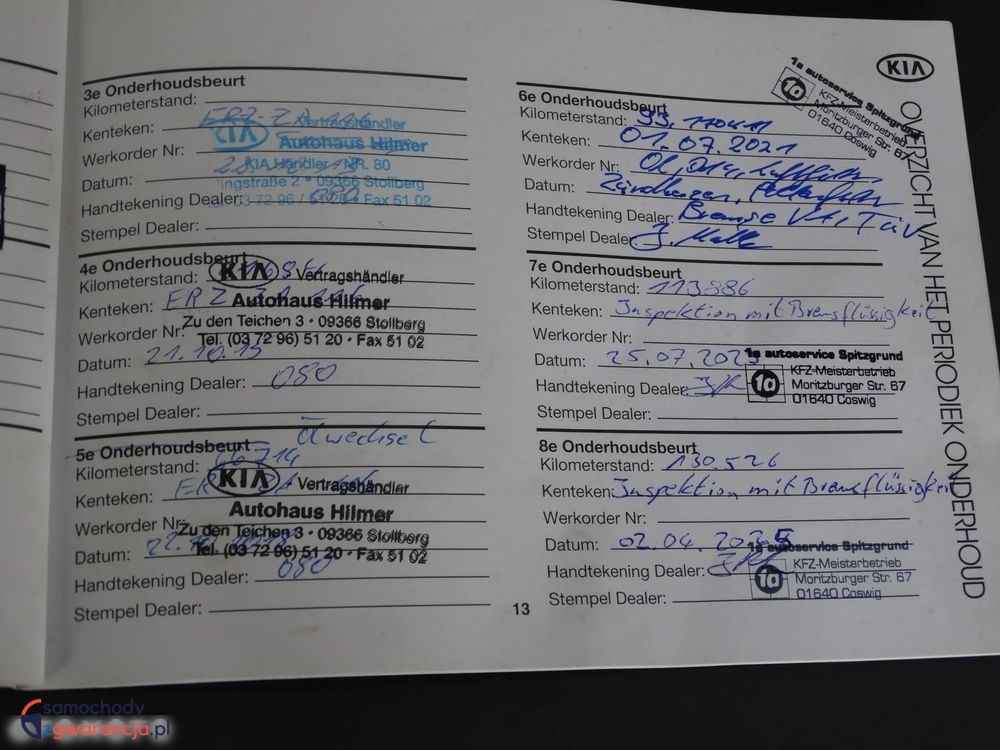 3e Onderhoudsbeurt
Kilometerstand:
Kenteken: ERZ-
KIA Vertragshändler
Werkorder Nr: Autohaus Hilmer
KIA Händler - NR. 80
Datum: ingstraße 2 • 09366 Stollberg
Handtekening Dealer: 080
Tel. 03 72 96 / 51 20 • Fax 51 02
Stempel Dealer:
4e Onderhoudsbeurt
Kilometerstand: KIA Vertragshändler
Kenteken: ERZ Autohaus Hilmer
Zu den Teichen 3 • 09366 Stollberg
Werkorder Nr: Tel. (03 72 96) 51 20 • Fax 51 02
Datum: 21.10.15
Handtekening Dealer: 080
Stempel Dealer:
5e Onderhoudsbeurt Ölwechsel
Kilometerstand: 66714
KIA Vertragshändler
Kenteken: ER
Autohaus Hilmer
Werkorder Nr: Zu den Teichen 3 • 09366 Stollberg
Datum: Tel. (03 72 96) 51 20 • Fax 51 02
Handtekening Dealer: 080
Stempel Dealer:
13
KIA
OVERZICHT VAN HET PERIODIEK ONDERHOUD
6e Onderhoudsbeurt
1a autoservice Spitzgrund
1a KFZ-Meisterbetrieb
Moritzburger Str. 67
01640 Coswig
Kilometerstand:
Kenteken: 01.07.2021
Werkorder Nr:
Datum:
Handtekening Dealer: Bremse TÜV
Stempel Dealer:
7e Onderhoudsbeurt
Kilometerstand: 113886
Kenteken: Inspektion mit Bremsflüssigkeit
Werkorder Nr:
Datum: 25.07.2023
1a autoservice Spitzgrund
Handtekening Dealer: 1a KFZ-Meisterbetrieb
Moritzburger Str. 67
01640 Coswig
Stempel Dealer:
8e Onderhoudsbeurt
Kilometerstand: 130.526
Kenteken: Inspektion mit Bremsflüssigkeit
Werkorder Nr:
Datum: 02.04.2025
1a autoservice Spitzgrund
Handtekening Dealer: 1a KFZ-Meisterbetrieb
Moritzburger Str. 67
01640 Coswig
Stempel Dealer:
samochody
zgwarancja.pl